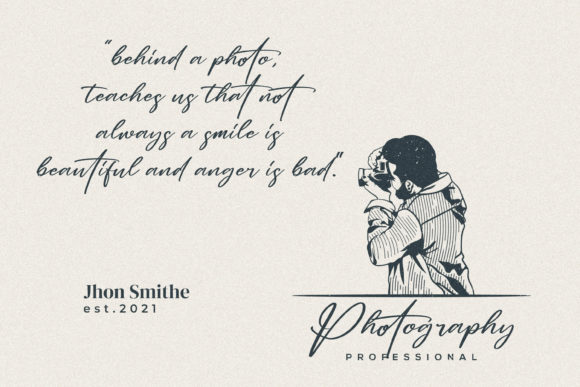 "behind a photo,
teaches us that not
always a smile is
beautiful and anger is bad."
Jhon Smithe
est.2021
Photography
PROFESSIONAL